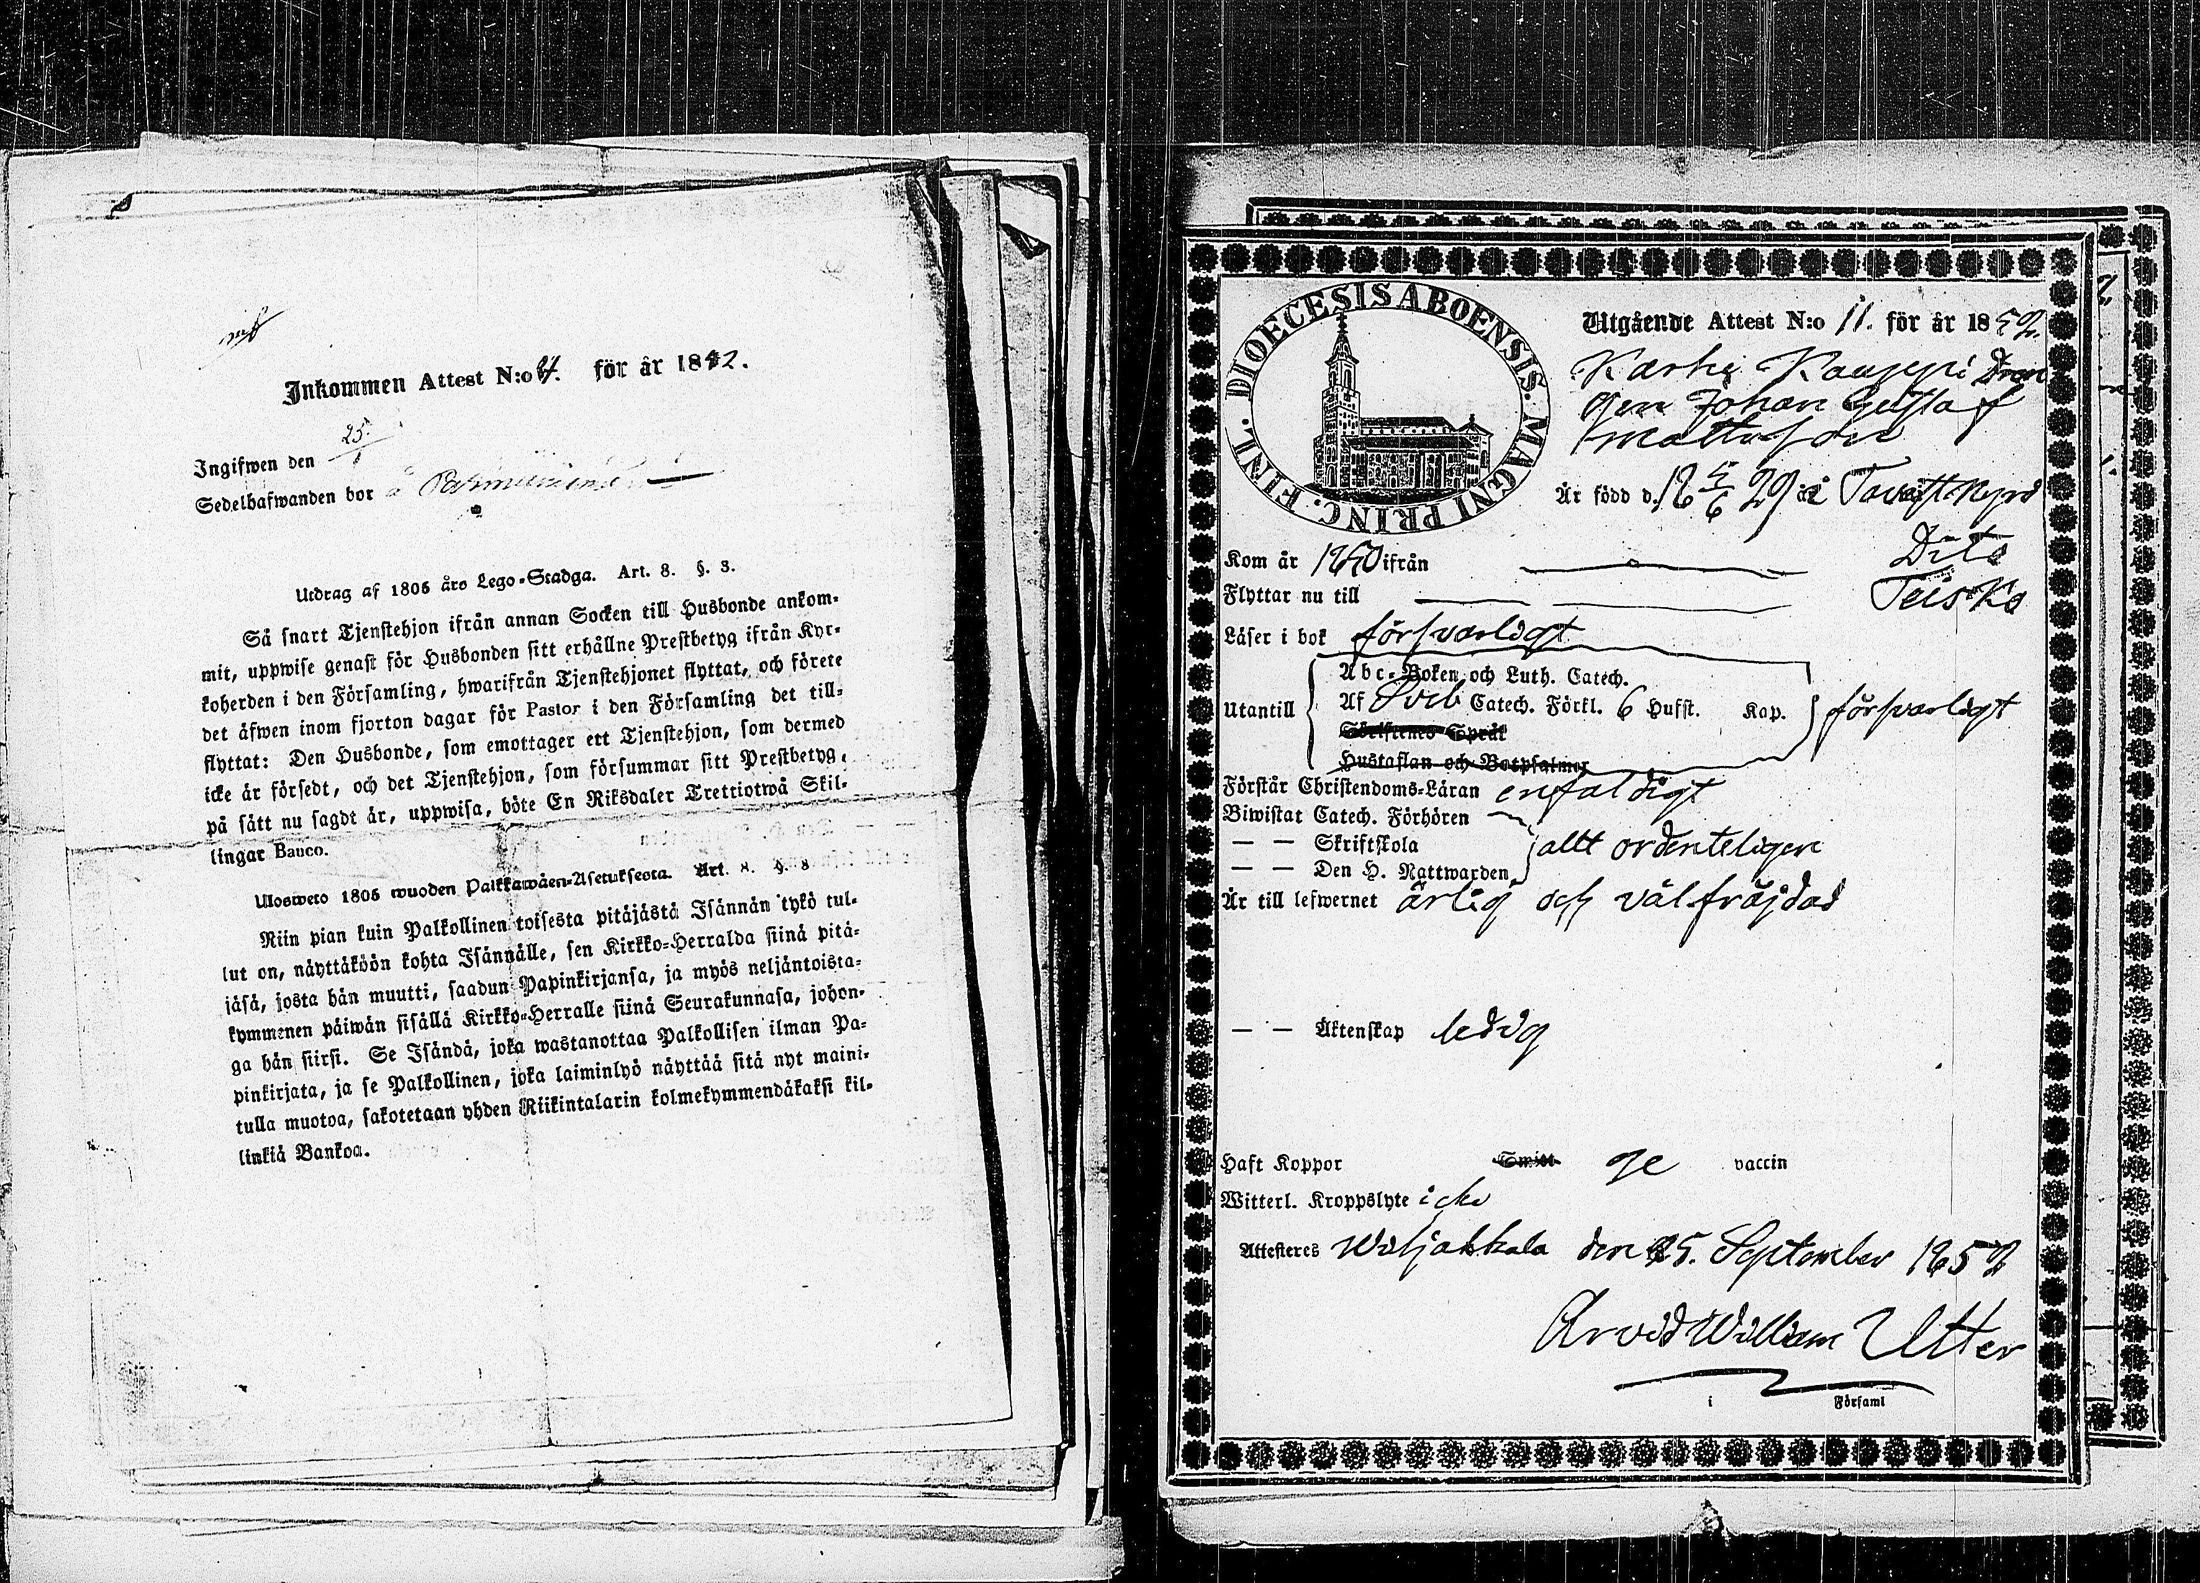 Inkommen Attest N:o 4. för år 1842.
Ingifwen den 25.
Sedelhafwanden bor å
Utdrag af 1805 års Lego-Stadga. Art. 8. §. 3.
Så snart Tjenstehjon ifrån annan Socken till Husbonde ankom-
mit, uppwise genast för Husbonden sitt erhållne Prestbetyg ifrån Kyr-
koherden i den Församling, hwarifrån Tjenstehjonet flyttat, och förete
det äfwen inom fjorton dagar för Pastor i den Församling det till-
flyttat: Den Husbonde, som emottager ett Tjenstehjon, som dermed
icke är försedt, och det Tjenstehjon, som försummar sitt Prestbetyg,
på sätt nu sagdt är, uppwisa, böte En Riksdaler Trettiotwå Skil-
lingar Banco.
Ulosweto 1805 wuoden Palkkawäen-Asetuksesta. Art. 8. §. 8
Niin pian kuin Palkollinen toisesta pitäjästä Isännän tykö tul-
lut on, näyttäköön kohta Isännälle, sen Kirkko-Herralda siinä pitä-
jäsä, josta hän muutti, saadun Papinkirjansa, ja myös neljäntoista-
kymmenen päiwän sisällä Kirkko-Herralle siinä Seurakunnasa, johon-
ga hän siirsi. Se Isändä, joka wastanottaa Palkollisen ilman Pa-
pinkirjata, ja se Palkollinen, joka laiminlyö näyttää sitä nyt maini-
tulla muotoa, sakotetaan yhden Riikintalarin kolmekymmendäkaksi kil-
linkiä Bankoa.
DIOECESIS ABOENSIS. MAGNI PRINC. FINL.
Utgående Attest N:o 11. för år 1852.
Karhi Kauppi Dren
gen Johan Gustaf
Mattsson
Är född d. 18 5/6 29 i Tavastkyro
Kom år 1850 ifrån Dito
Flyttar nu till Teisko
Läser i bok försvarligt
Utantill
Abc-Boken och Luth. Catech.
Af Sveb Catech. Förkl. 6 Hufst. Kap. försvarligt
Skriftenes Språk
Hustaflan och Botpsalmer
Förstår Christendoms-Läran enfaldigt
Biwistat Catech. Förhören
— — Skriftskola allt ordenteligen
— — Den H. Nattwarden
Är till lefwernet ärlig och välfräjdad
— — Äktenskap ledig
Haft Koppor Smitt ge vaccin
Witterl. Kroppslyte icke
Attesteres Wiljakkala den 25. September 1852
Arvid William Utter
i Församl